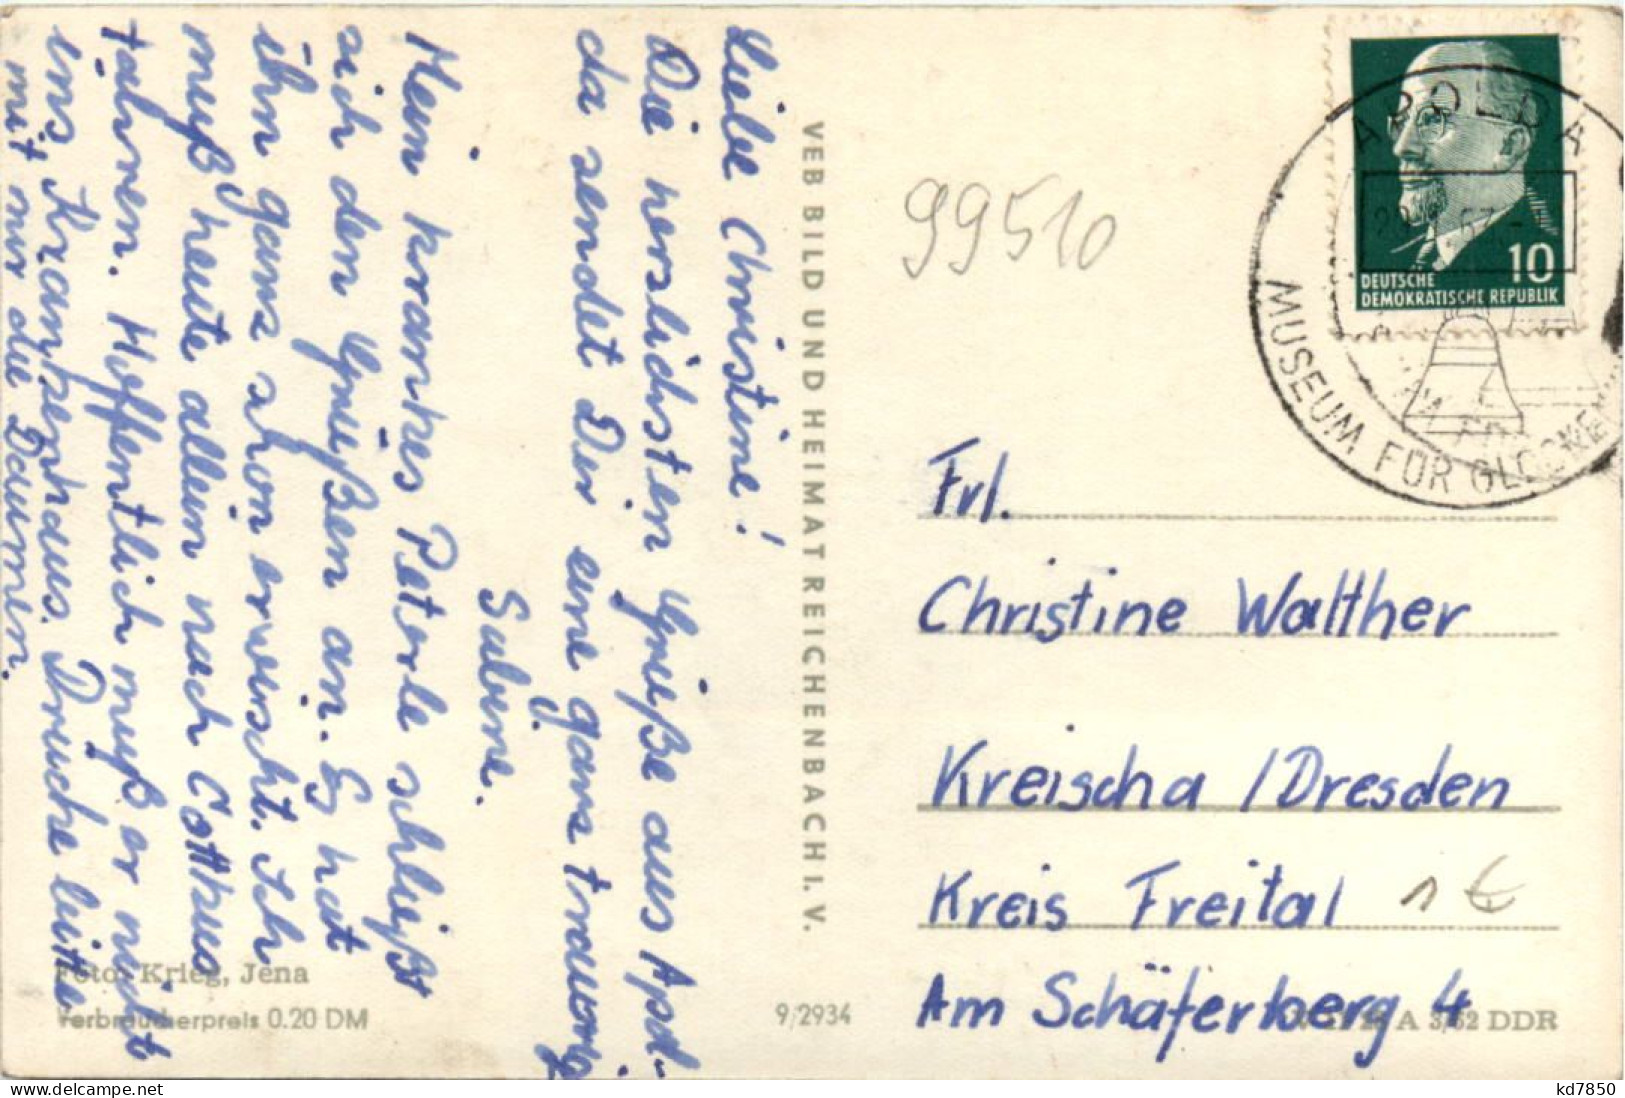 Liebe Christine!
Die herzlichsten Grüße aus Apol-
da sendet Dir eine ganz traurige
Sabine.
Mein krankes Peterle schließt
sich den Grüßen an. Es hat
ihn ganz schön erwischt. Ich
muß heute allein nach Cottbus
fahren. Hoffentlich muß er nicht
ins Krankenhaus. Drücke bitte
mit mir die Daumen.
Foto: Krieg, Jena
Verbraucherpreis 0.20 DM
VEB BILD UND HEIMAT REICHENBACH I. V.
9/2934
99510
APOLDA
MUSEUM FÜR GLOCKEN
10
DEUTSCHE
DEMOKRATISCHE REPUBLIK
Frl.
Christine Walther
Kreischa /Dresden
Kreis Freital
1 €
Am Schäferberg 4
A 3/62 DDR
kd7850
www.delcampe.net